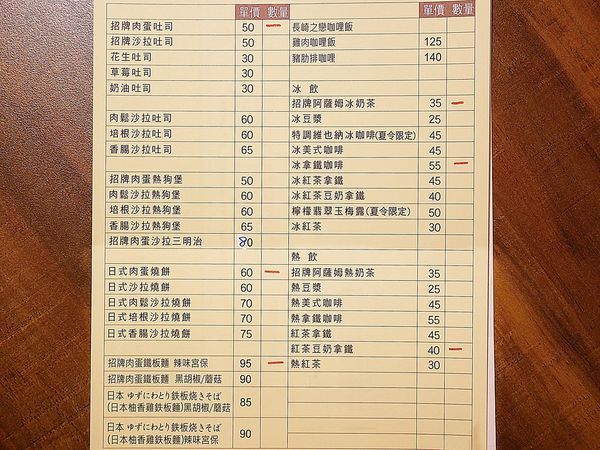 單價 數量 單價 數量
招牌肉蛋吐司 50 一 長崎之戀咖哩飯
招牌沙拉吐司 50 雞肉咖哩飯 125
花生吐司 30 豬肋排咖哩 140
草莓吐司 30
奶油吐司 30 冰 飲
招牌阿薩姆冰奶茶 35 一
肉鬆沙拉吐司 60 冰豆漿 25
培根沙拉吐司 60 特調維也納冰咖啡(夏令限定) 45
香腸沙拉吐司 65 冰美式咖啡 45
冰拿鐵咖啡 55 一
招牌肉蛋熱狗堡 50 冰紅茶拿鐵 45
肉鬆沙拉熱狗堡 60 冰紅茶豆奶拿鐵 40
培根沙拉熱狗堡 60 檸檬翡翠玉梅露(夏令限定) 50
香腸沙拉熱狗堡 65 冰紅茶 30
招牌肉蛋沙拉三明治 80
熱 飲
日式肉蛋燒餅 60 一 招牌阿薩姆熱奶茶 35
日式沙拉燒餅 60 熱豆漿 25
日式肉鬆沙拉燒餅 70 熱美式咖啡 45
日式培根沙拉燒餅 70 熱拿鐵咖啡 55
日式香腸沙拉燒餅 75 紅茶拿鐵 45
紅茶豆奶拿鐵 40 一
招牌肉蛋鐵板麵 辣味宮保 95 一 熱紅茶 30
招牌肉蛋鐵板麵 黑胡椒/蘑菇 90
日本 ゆずにわとり鉄板焼きそば
(日本柚香雞鉄板麵)黑胡椒/蘑菇 85
日本 ゆずにわとり鉄板焼きそば
(日本柚香雞鉄板麵)辣味宮保 90